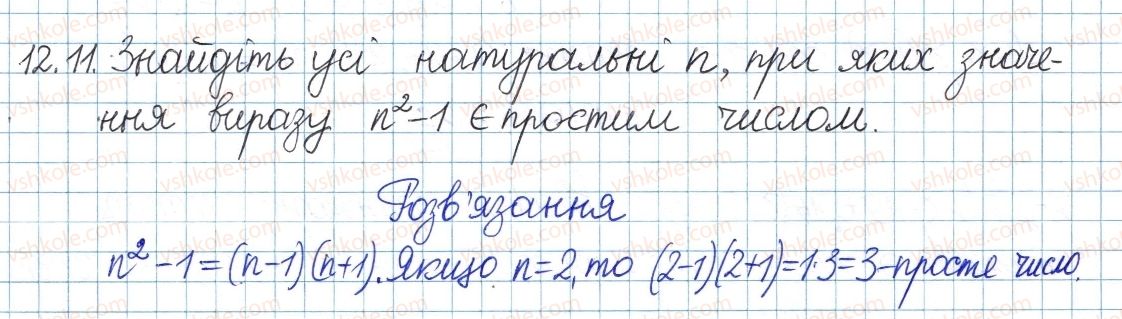 12.11. Знайдіть усі натуральні n, при яких значе-
ння виразу n²-1 є простим числом.
Розв'язання
n²-1=(n-1)(n+1). Якщо n=2, то (2-1)(2+1)=1·3=3-просте число.